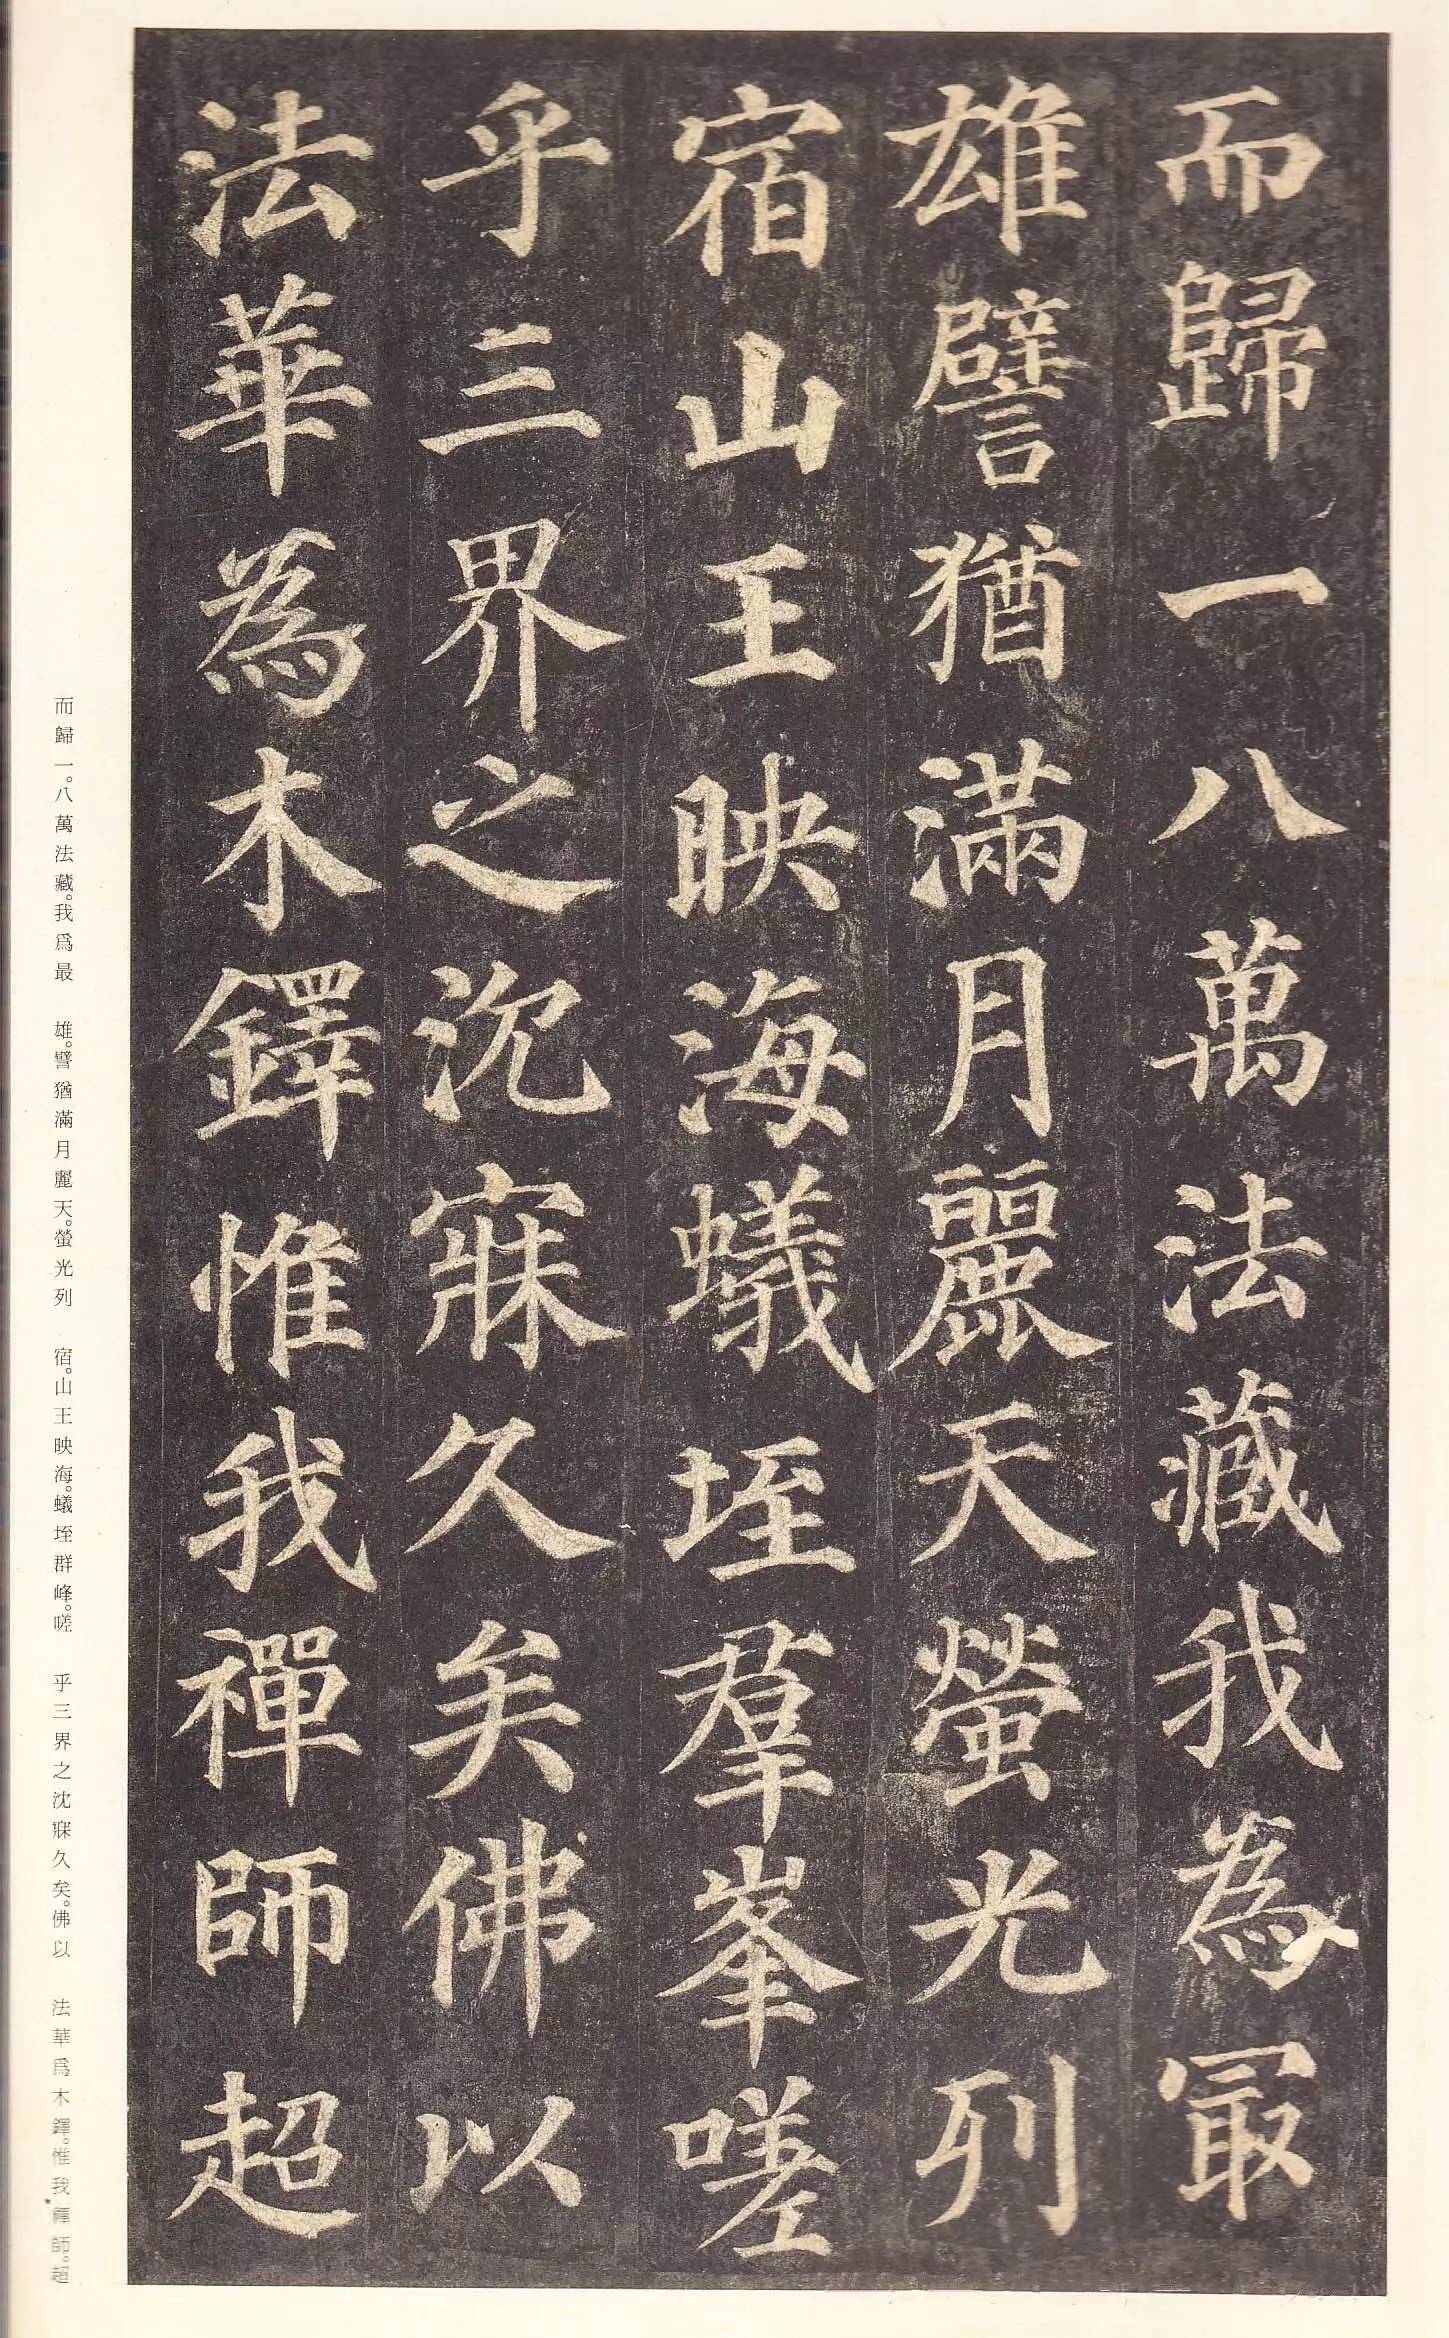 而歸一八萬法藏我為冣
雄譬猶滿月麗天螢光列
宿山王映海蟻垤羣峯嗟
乎三界之沉寐久矣佛以
法華為木鐸惟我禪師超
而歸一。八萬法藏。我爲最　雄。譬猶滿月麗天。螢光列　宿。山王映海。蟻垤群峰。嗟　乎三界之沈寐久矣。佛以　法華爲木鐸。惟我禪師。超